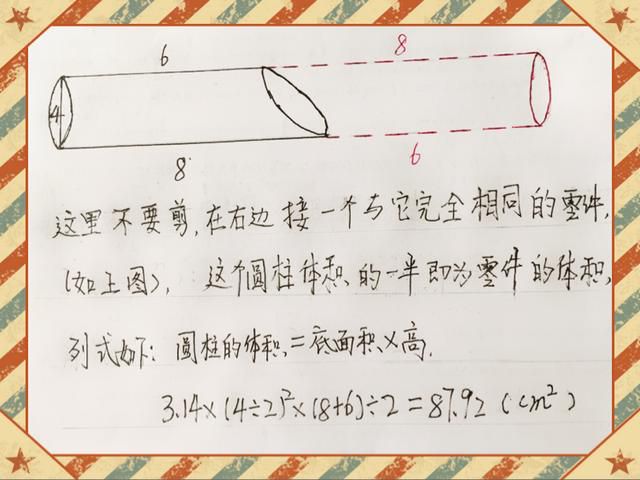 6
8
4
8
6
这里不要剪,在右边接一个与它完全相同的零件,
(如上图), 这个圆柱体积的一半即为零件的体积,
列式如下: 圆柱的体积=底面积×高.
3.14×(4÷2)²×(8+6)÷2=87.92(cm²)